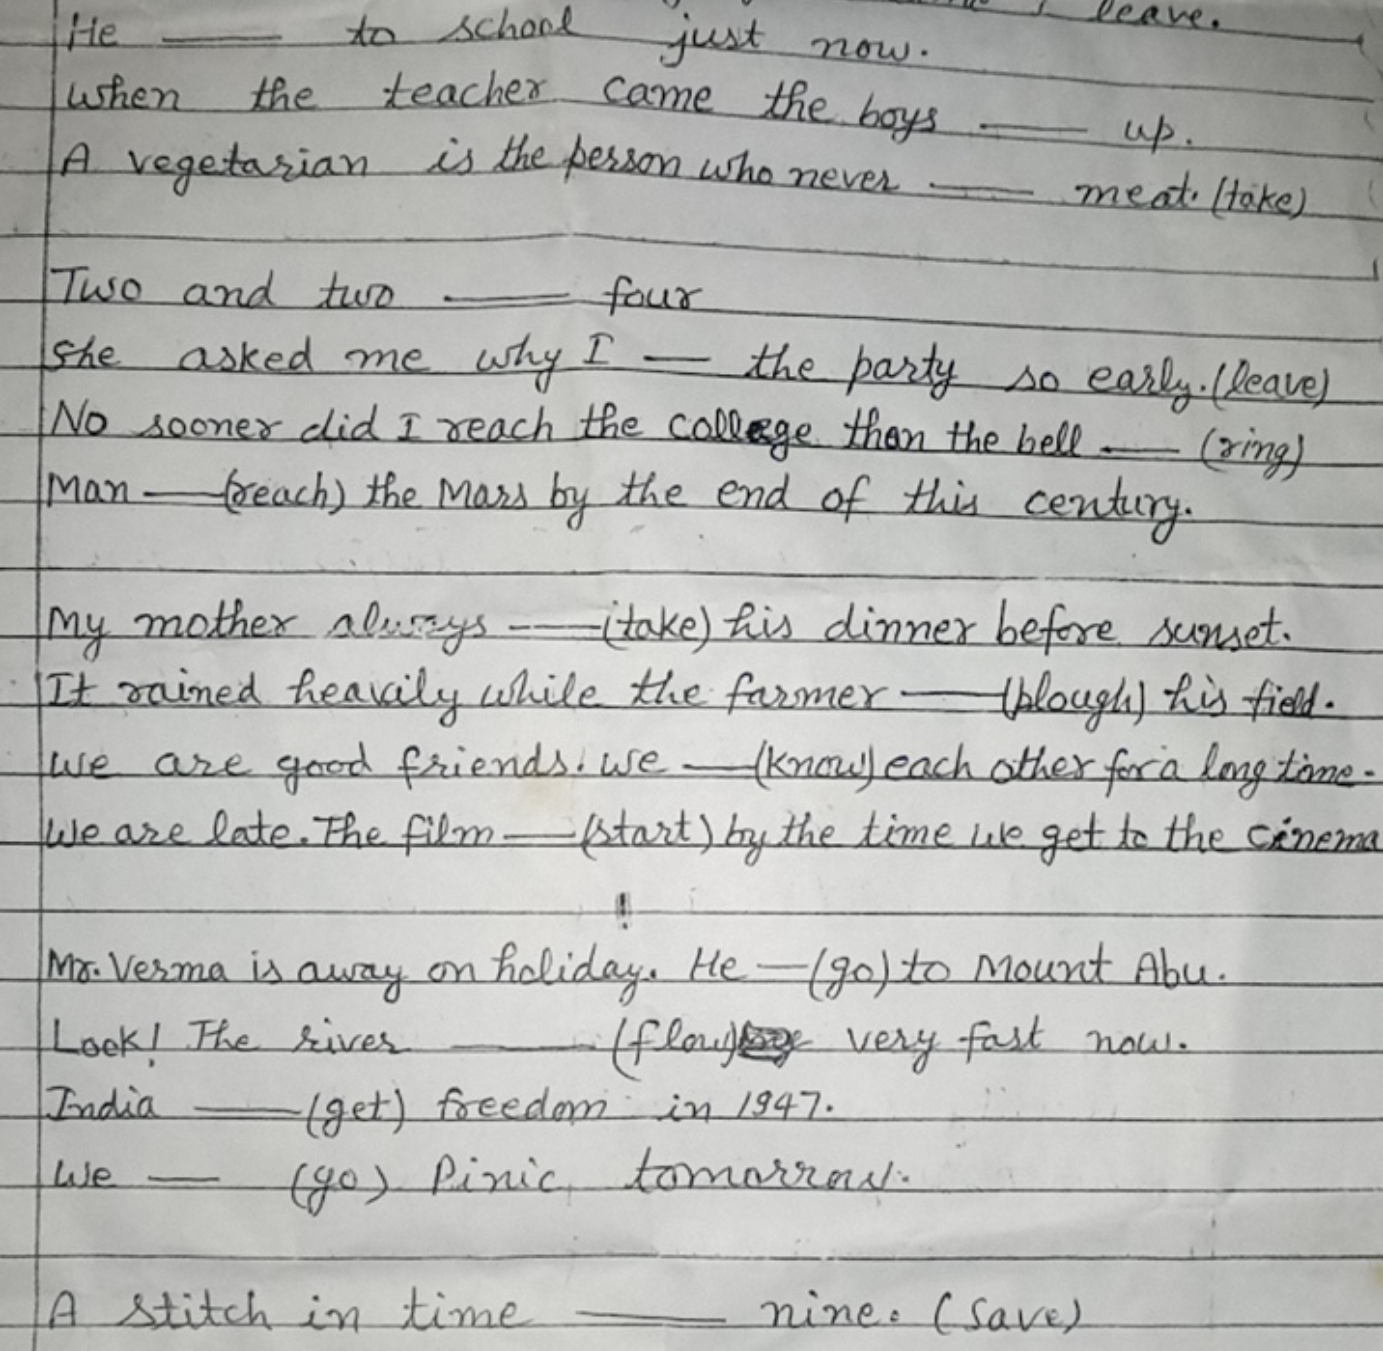 leave.
He —— to school just now.
when the teacher came the boys —— up.
A vegetarian is the person who never —— meat. (take)
Two and two —— four
She asked me why I — the party so early. (leave)
No sooner did I reach the college than the bell —— (ring)
Man —— (reach) the Mars by the end of this century.
My mother always —— (take) his dinner before sunset.
It rained heavily while the farmer —— (plough) his field.
We are good friends. We —— (know) each other for a long time.
We are late. The film —— (start) by the time we get to the cinema
!
Mr. Verma is away on holiday. He — (go) to Mount Abu.
Look! The river —— (flow) very fast now.
India —— (get) freedom in 1947.
We — (go) Pinic tomorrow.
A stitch in time —— nine. (Save)